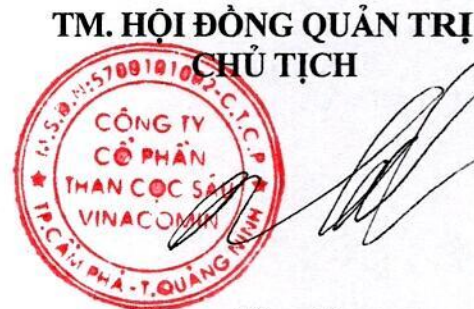 TM. HỘI ĐỒNG QUẢN TRỊ
CHỦ TỊCH
M.S.D.N:5700101002-C.T.C.P
CÔNG TY
CỔ PHẦN
THAN CỌC SÁU
VINACOMIN
TP.CẨM PHẢ-T.QUẢNG NINH